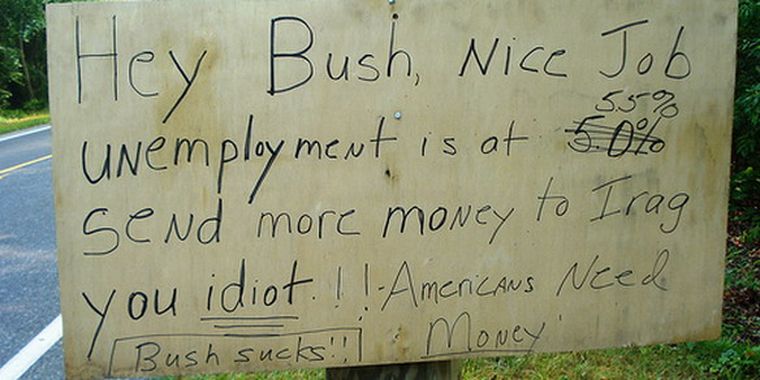 Hey Bush, Nice Job
5.5%
unemployment is at 5.0%
Send more money to Irag
you idiot.!!-Americans Need
Bush sucks!! Money